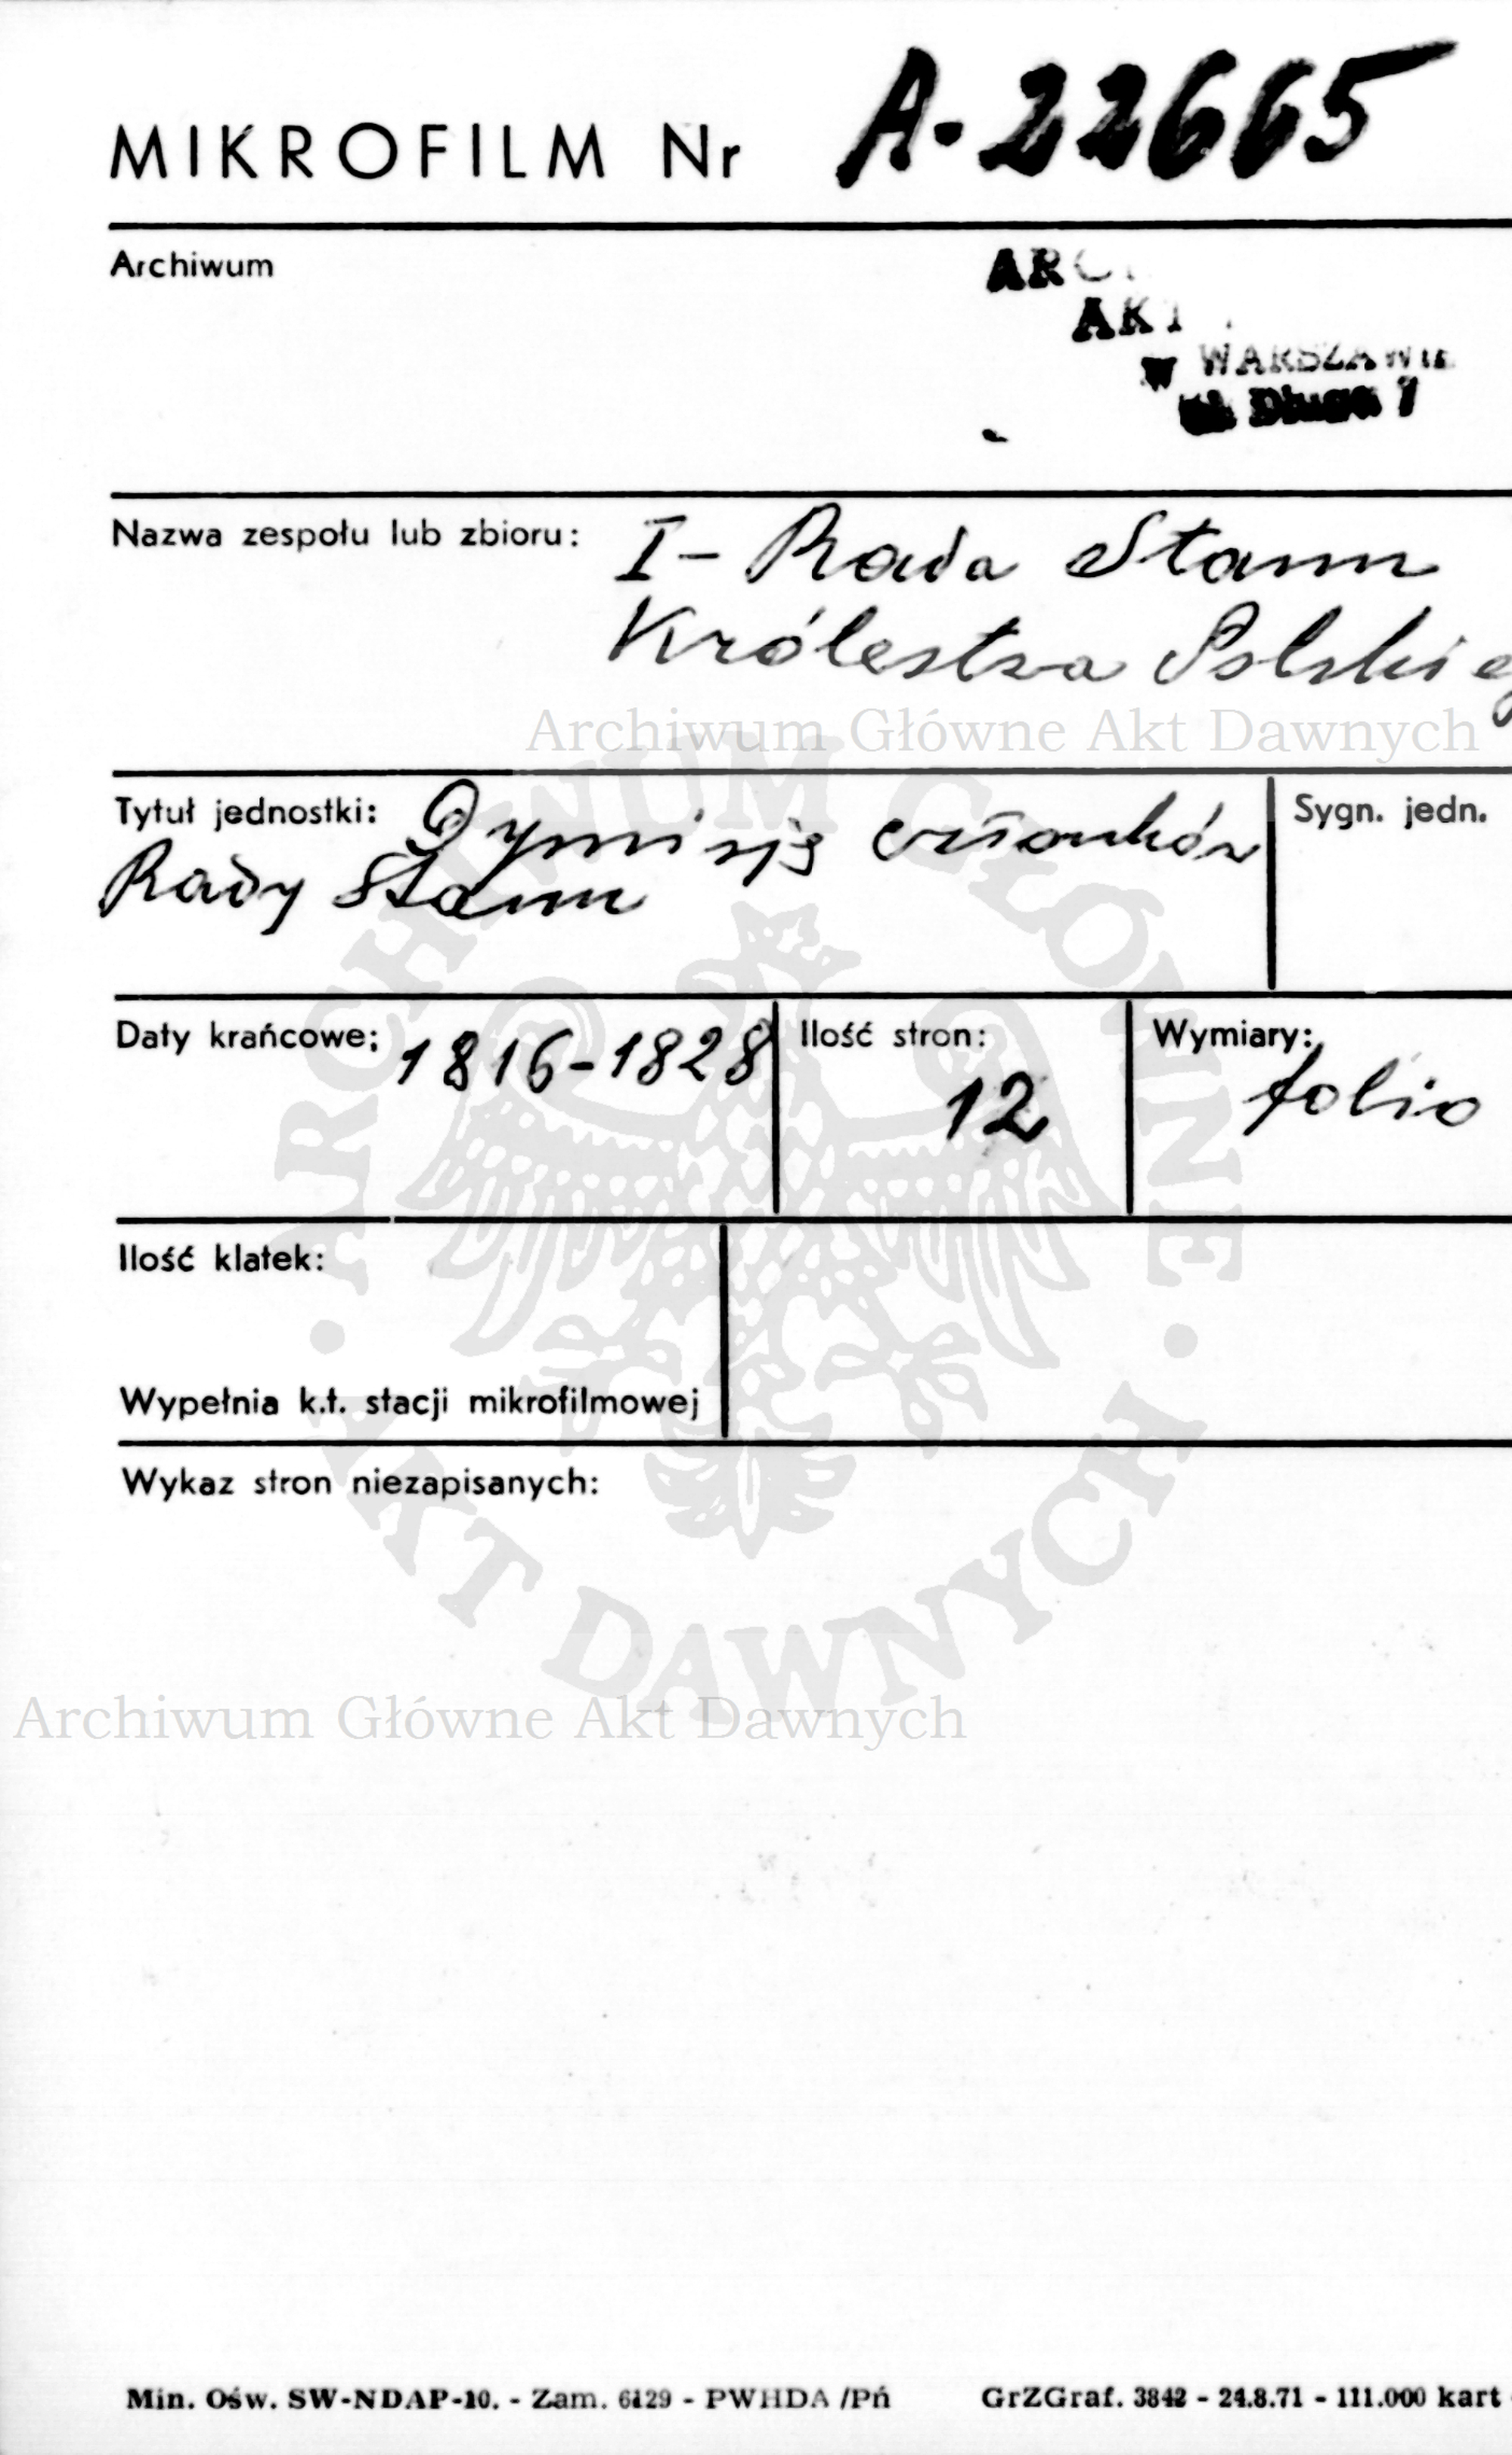 MIKROFILM Nr A-22665
Archiwum
AR
AKT
W WARSZAWIE
ul. Długa 7
Nazwa zespołu lub zbioru: I- Rada Stanu
Królestwa Polskieg
Archiwum Główne Akt Dawnych
Tytuł jednostki: Dymisje członków
Rady Stanu
Sygn. jedn.
Daty krańcowe: 1816-1828
Ilość stron: 12
Wymiary: folio
Ilość klatek:
Wypełnia k.t. stacji mikrofilmowej
Wykaz stron niezapisanych:
ARCHIWUM GŁÓWNE
AKT DAWNYCH
Archiwum Główne Akt Dawnych
Min. Ośw. SW-NDAP-10. - Zam. 6129 - PWHDA /Pń GrZGraf. 3842 - 24.8.71 - 111.000 kart